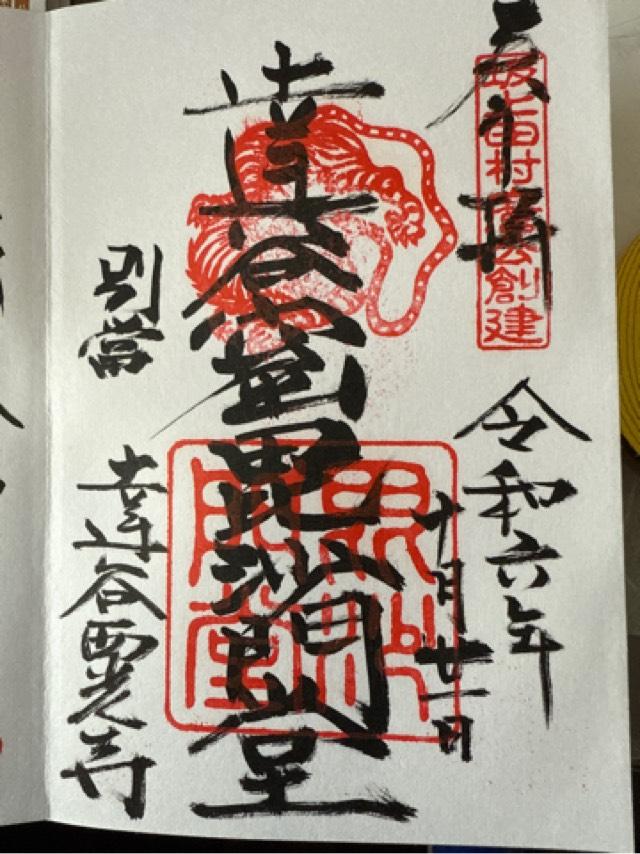 奉拝
坂上田村麿公創建
令和六年
十月廿一日
達谷窟毘沙門堂
毘沙門堂
別當
達谷西光寺